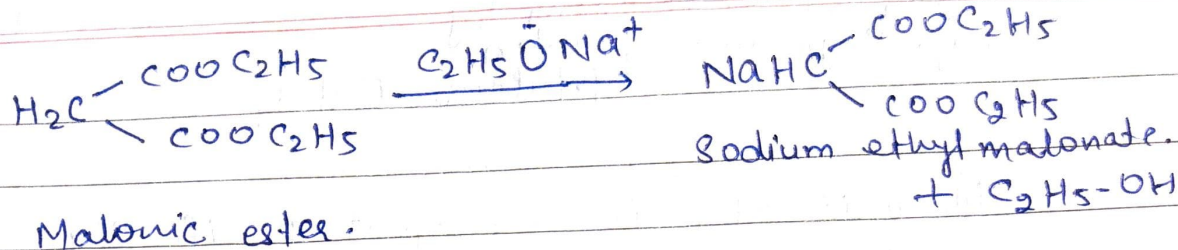 H2C COOC2H5 COOC2H5 C2H5ŌNa+ → NaHC COOC2H5 COOC2H5
Sodium ethyl malonate.
+ C2H5-OH
Malonic ester.